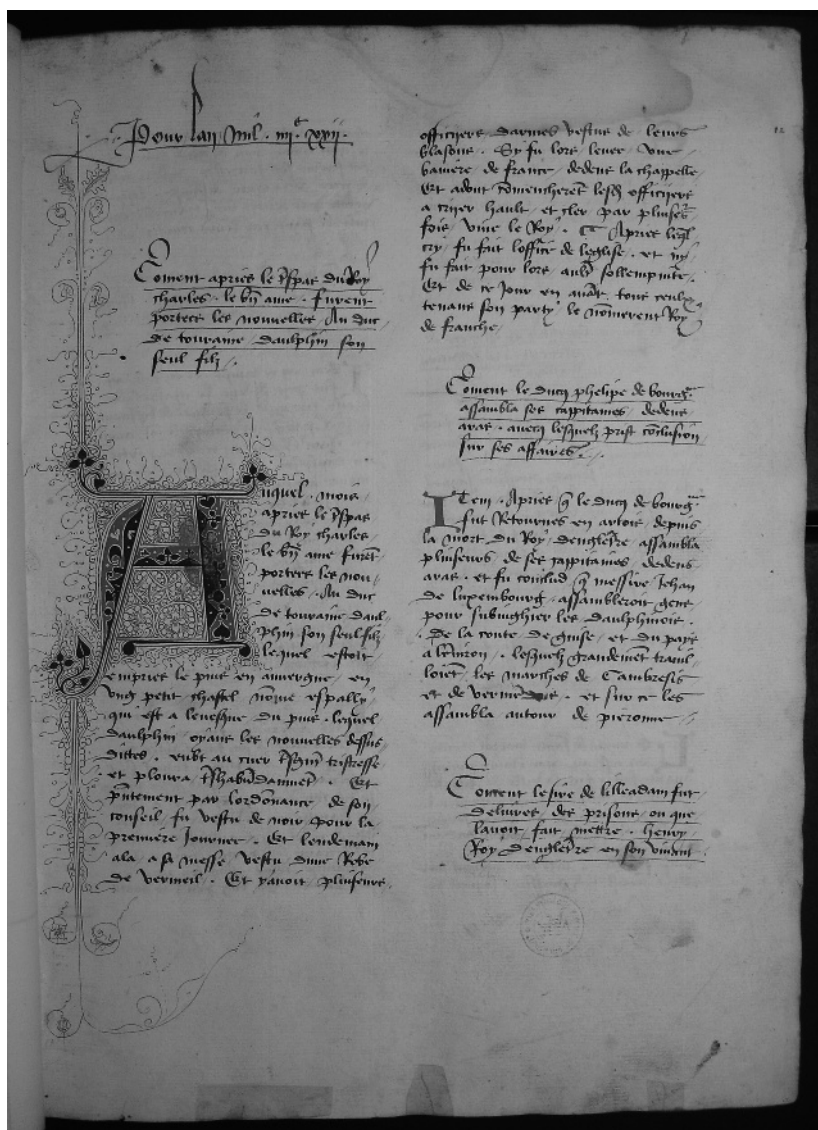 Pour lan mil. iiijc. xxij.
Coment apries le trespas du Roy
charles. le bn ame. furent
portees les nouvelles. Au duc
de touraine daulphin son
seul filz
Auquel. mois
apries le trespas
du Roy charles.
le bn ame furet
portees les nou-
velles. Au duc
de touraine daul-
phin son seul filz
lequel estoit
empries le puis en auvergne. en
ung petit chastel nome espally
qui est a levesque du puis. lequel
daulphin oyans les nouvelles dessus
dittes. eubt au cuer tristresse.
et ploura. Et
pntement par lordonance. de son
conseil fu vestu de noir pour la
premiere Journee. Et lendemain
ala a sa messe vestu dune Robe
de vermeil. Et yavoit pluiseurs
officiyers darmes vestus de leurs
blasons. Sy fu lors levee une
baniere de france dedens la chappelle
Et adont comencheret lesd officiyers
a criyer hault et cler par pluiseurs
fois vive le Roy. Apries leql
cry fu fait loffice de leglise. et ny
fu fait pour lors aultre sollempnite.
Et de ce Jour en avat. tous ceulx
tenans son party le nomerent Roy
de franche
Coment le ducq phelipe de bourg.
assambla ses cappitaines dedens
aras. avecq lesquelz prist coclusion
sur ses affaires.
Item. Apries q le ducq de bourg
fut Retournes en artois. depuis
la mort du Roy dengletre assambla
pluiseurs de ses cappitaines dedens
aras. et fu conclud q messire Jehan
de luxembourg. assambleroit gens
pour subinghier les daulphinois.
de la conte de guise. et du pays
a lenviron. lesquelz grandemet travil-
loiet. les marches de Cambresis
et de et sur ce les
assambla autour de pieronne
Coment le sire de lilleadam fut
delivres des prisons ou que
lavoit fait mettre. henry.
Roy dengletre en son vivant.